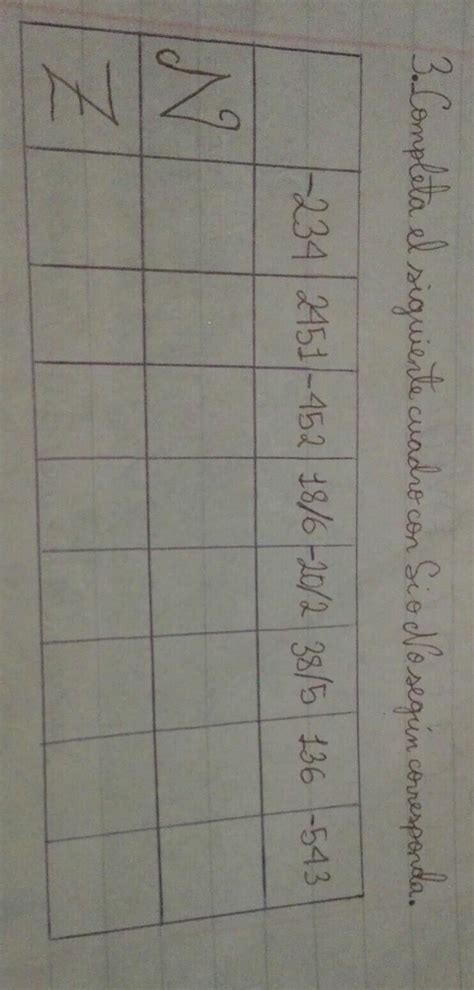 3. Completa el siguiente cuadro con Si o No según corresponda.
-234 2451 -452 18/6 -20/2 38/5 136 -543
N
Z